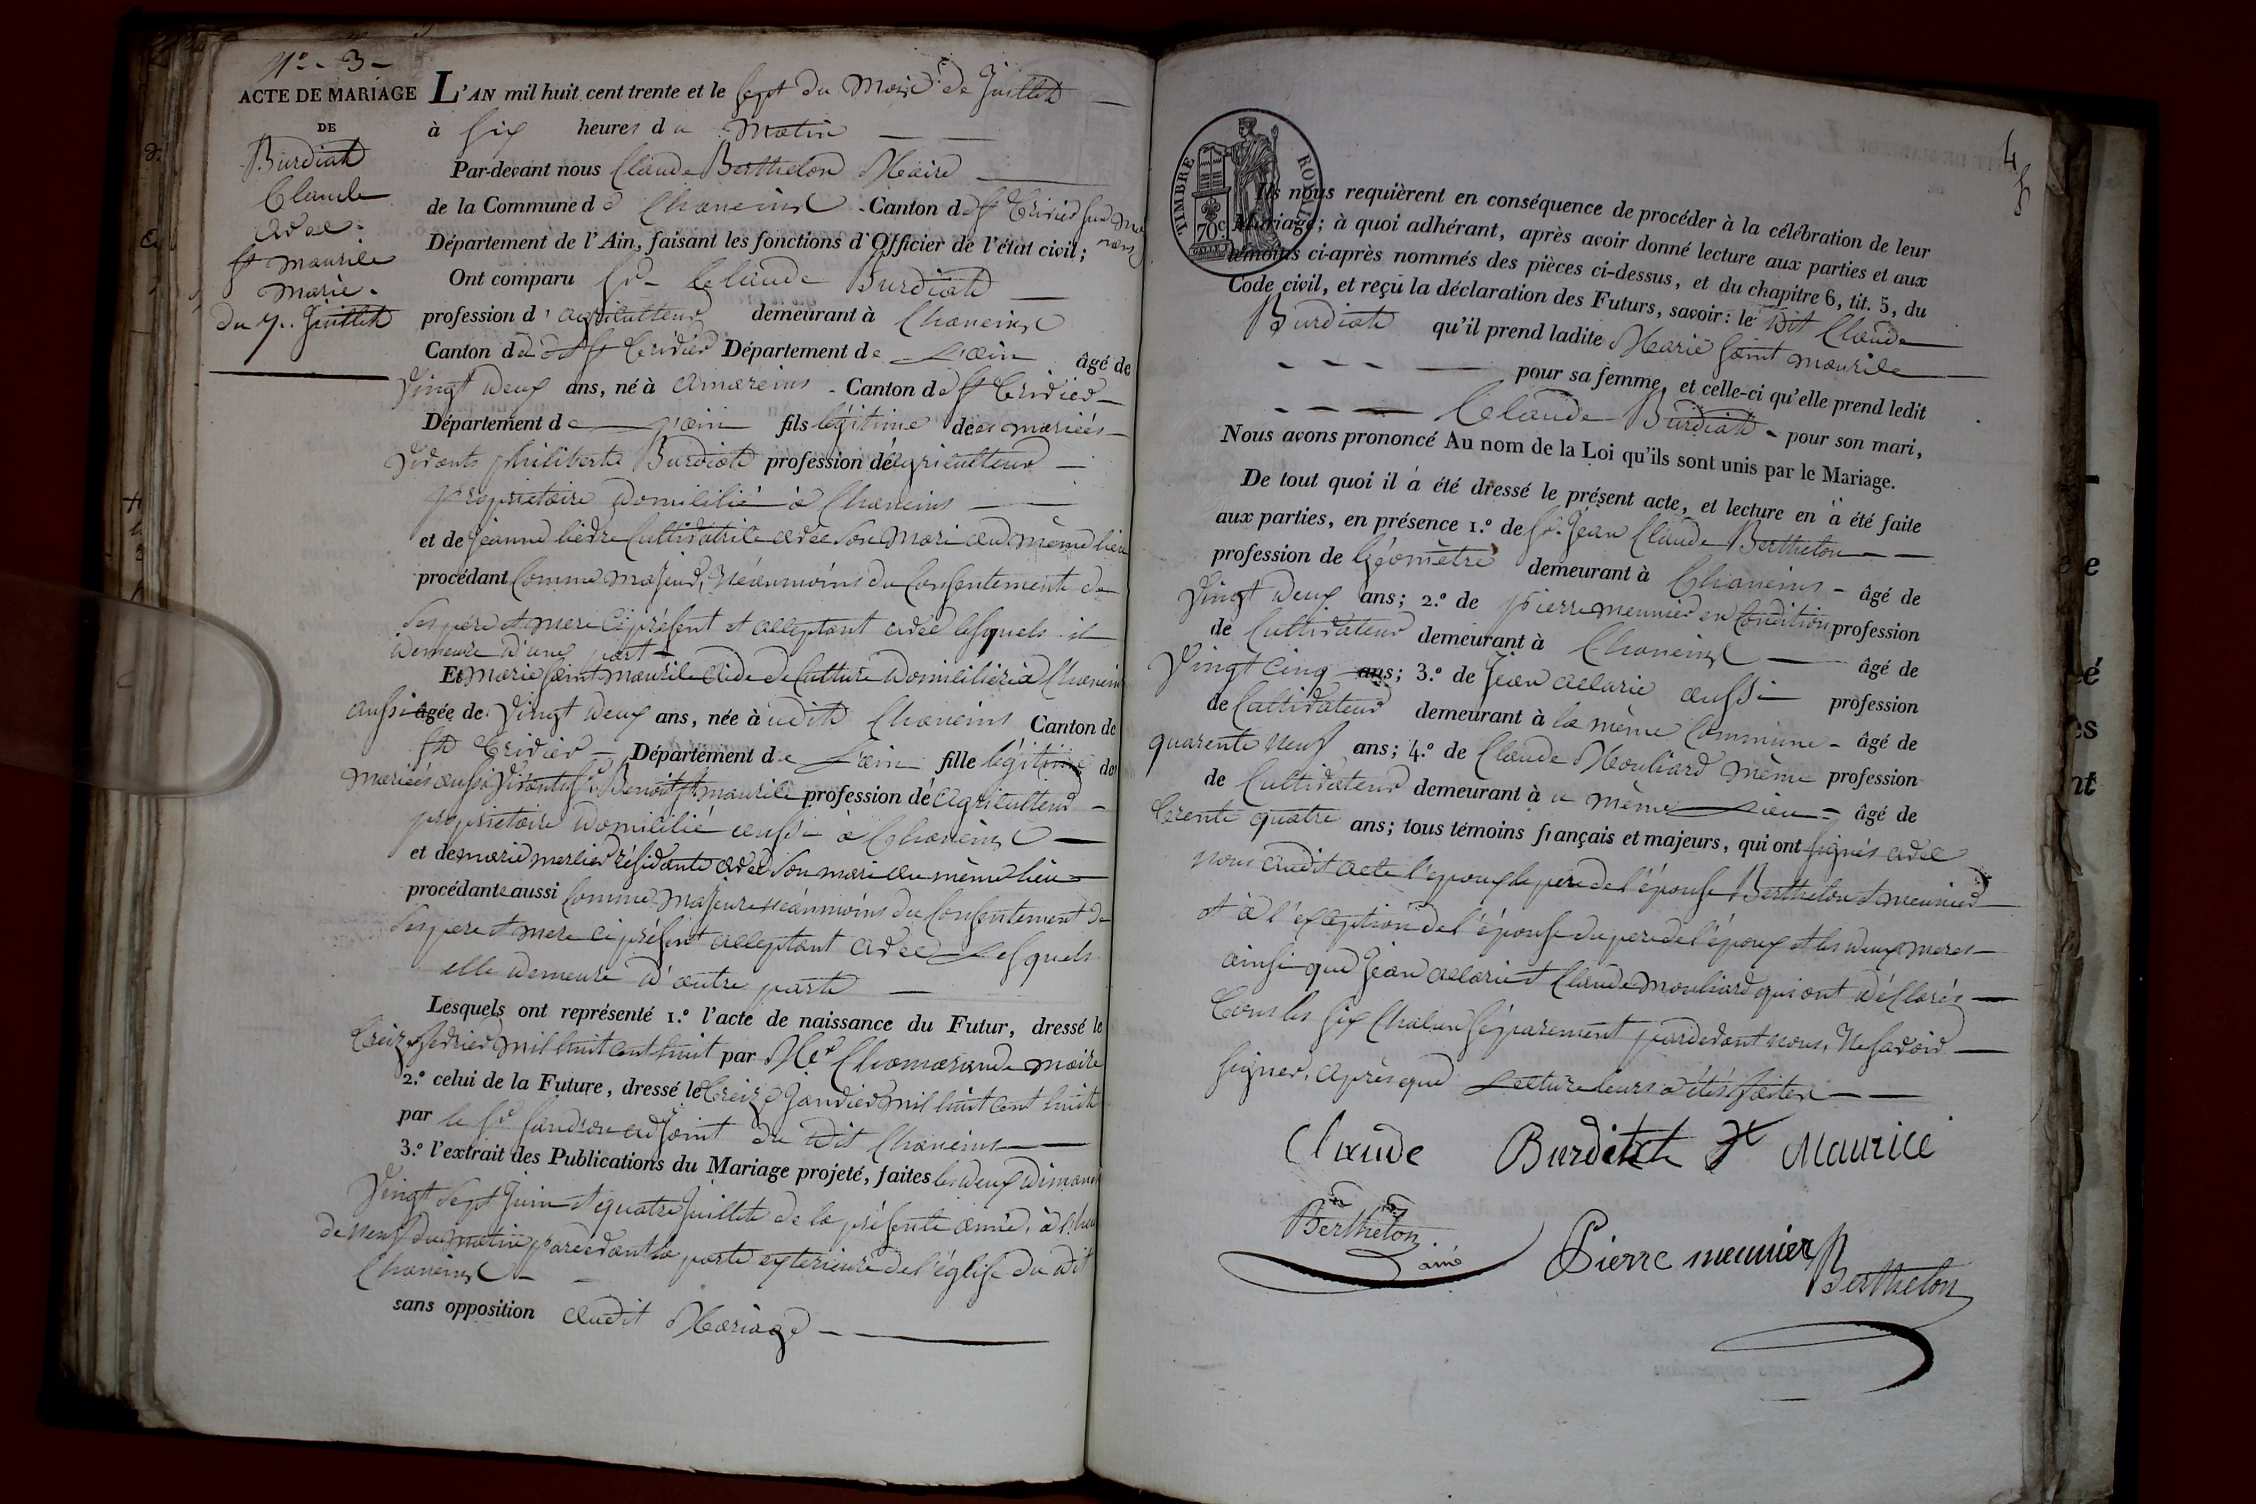 N.° - 3 -
ACTE DE MARIAGE
DE
Burdiat
Claude
avec
St Maurice
Marie.
du 7. Juillet
L'AN mil huit cent trente et le sept du Mois de Juillet
à six heures du Matin
Par-devant nous Claude Berthelon Maire
de la Commune de Chaneins Canton de St Trivier sur
Département de l'Ain, faisant les fonctions d'Officier de l'état civil;
Ont comparu Sr Claude Burdiat
profession d'agriculteur demeurant à Chaneins
Canton de St Trivier Département de L'ain âgé de
Vingt deux ans, né à Amareins Canton de St Trivier
Département de L'ain fils légitime de mariés
Vivants philiberte Burdiat profession d'agriculteur
propriétaire domicilié à Chaneins
et de Jeanne lievre Cultivatrice avec Son Mari au même lieu
procédant Comme Majeur, Néanmoins du Consentement de
Ses pere et mere ci présent et acceptant avec lesquels il
demeure d'une part
Et Marie Saint Maurice aide de Culture domiciliée à Chaneins
aussi âgée de Vingt deux ans, née à udit Chaneins Canton de
St Trivier Département de L'ain fille légitime de
mariés aussi Vivants Sr Benoit St Maurice profession d'Agriculteur
propriétaire domicilié aussi à Chaneins
et de marie merlier résidante avec Son mari au même lieu
procédante aussi Comme Majeure néanmoins du Consentement de
Ses pere et mere ci présent acceptant avec Lesquels
elle demeure d'autre parte
Lesquels ont représenté 1.° l'acte de naissance du Futur, dressé le
Treize fevrier mil huit cent huit par Mr Chamarande maire
2.° celui de la Future, dressé le Treize Janvier mil huit cent huit
par le Sr adjoint du dit Chaneins
3.° l'extrait des Publications du Mariage projeté, faites les deux dimanc
Vingt Sept Juin et quatre Juillet de la présente année, à l'heu
de neuf du matin pardevant la porte exterieure de l'église du dit
Chaneins
sans opposition audit Mariage
4
TIMBRE ROYAL
70c
Ils nous requièrent en conséquence de procéder à la célébration de leur
Mariage; à quoi adhérant, après avoir donné lecture aux parties et aux
témoins ci-après nommés des pièces ci-dessus, et du chapitre 6, tit. 5, du
Code civil, et reçu la déclaration des Futurs, savoir: le dit Claude
Burdiat qu'il prend ladite Marie Saint Maurice
pour sa femme, et celle-ci qu'elle prend ledit
Claude Burdiat pour son mari,
Nous avons prononcé Au nom de la Loi qu'ils sont unis par le Mariage.
De tout quoi il a été dressé le présent acte, et lecture en a été faite
aux parties, en présence 1.° de Sr Jean Claude Berthelon
profession de Géomètre demeurant à Chaneins âgé de
Vingt deux ans; 2.° de pierre meunier en Condition profession
de Cultivateur demeurant à Chaneins âgé de
Vingt Cinq ans; 3.° de Jean allarie aussi profession
de Cultivateur demeurant à la même Commune âgé de
quarente neuf ans; 4.° de Claude Mouliard même profession
de Cultivateur demeurant à u même Lieu âgé de
Trente quatre ans; tous témoins français et majeurs, qui ont signés avec
nous audit acte l'epoux le père de l'épouse Berthelon et meunier
et à l'exception de l'épouse du pere de l'époux et les deux meres
ainsi que Jean allarie et Claude Mouliard qui ont déclarés
Tous les six Chacun séparement pardevant nous, Ne Savoir
Signer, après que Lecture leurs a étés faites
Claude Burditet St Maurice
Berthelon
ainé
Pierre meunier
Berthelon